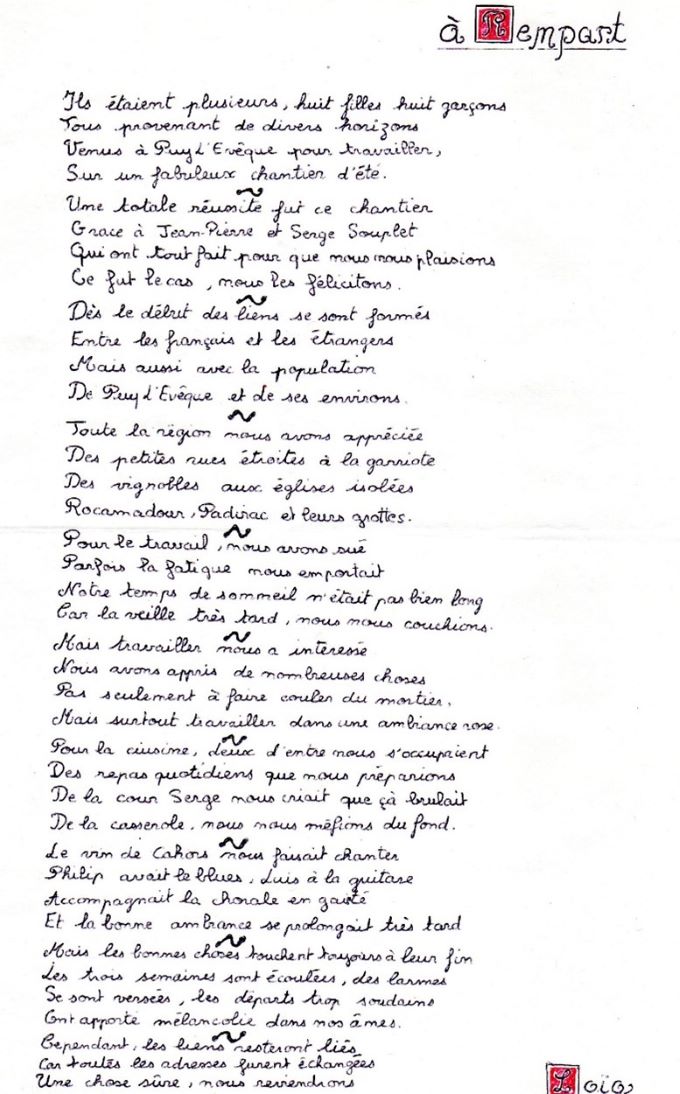 à Rempart
Ils étaient plusieurs, huit filles huit garçons
Tous provenant de divers horizons
Venus à Puy l'Evêque pour travailler,
Sur un fabuleux chantier d'été.
~
Une totale réussite fut ce chantier
Grace à Jean-Pierre et Serge Souplet
Qui ont tout fait pour que nous nous plaisions
Ce fut le cas, nous les félicitons.
~
Dès le début des liens se sont formés
Entre les français et les étrangers
Mais aussi avec la population
De Puy l'Evêque et de ses environs.
~
Toute la région nous avons appréciée
Des petites rues étroites à la garriote
Des vignobles aux églises isolées
Rocamadour, Padirac et leurs grottes.
~
Pour le travail, nous avons sué
Parfois la fatigue nous emportait
Notre temps de sommeil n'était pas bien long
Car la veille très tard, nous nous couchions.
~
Mais travailler nous a interessé
Nous avons appris de nombreuses choses
Pas seulement à faire couler du mortier,
Mais surtout travailler dans une ambiance rose.
~
Pour la ciusine, deux d'entre nous s'occupaient
Des repas quotidiens que nous préparions
De la cour Serge nous criait que çà brulait
De la casserole, nous nous méfions du fond.
~
Le vin de Cahors nous faisait chanter
Philip avait le blues, Luis à la guitare
Accompagnait la chorale en gaité
Et la bonne ambiance se prolongait très tard
~
Mais les bonnes choses touchent toujours à leur fin
Les trois semaines sont écoulées, des larmes
Se sont versées, les départs trop soudains
Ont apporté mélancolie dans nos âmes.
~
Cependant, les liens resteront liés
Car toutes les adresses furent échangées
Une chose sûre, nous reviendrons